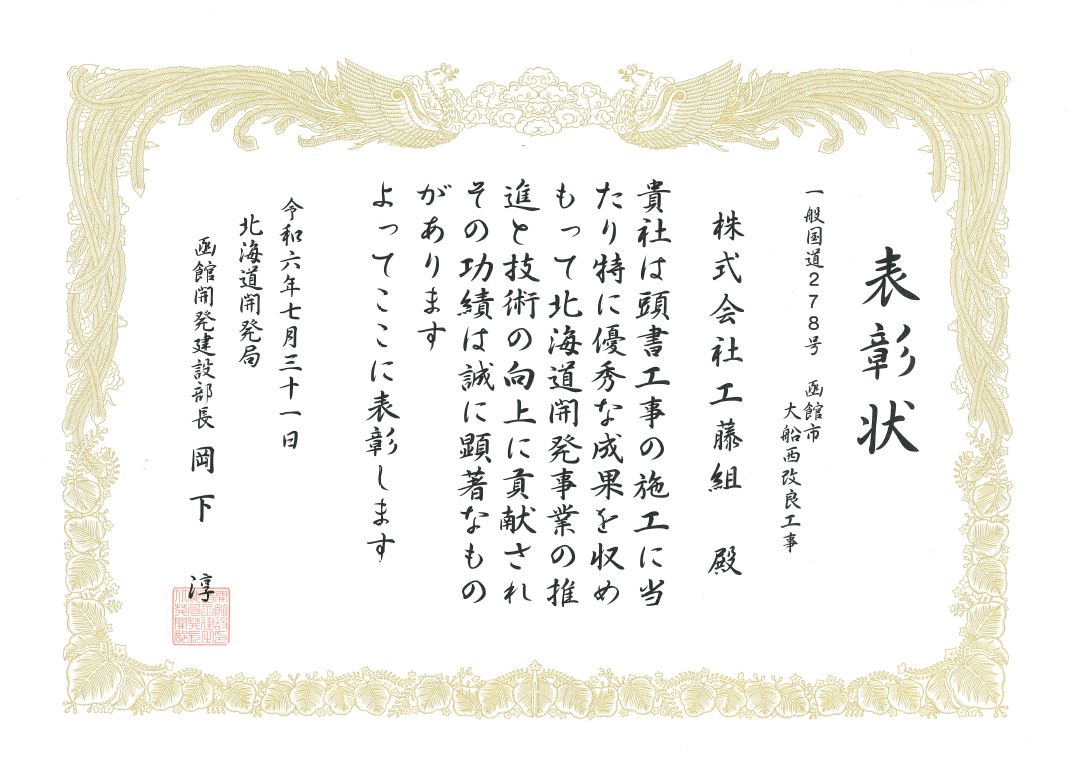 表彰状
一般国道278号 函館市
大船西改良工事
株式会社工藤組 殿
貴社は頭書工事の施工に当
たり特に優秀な成果を収め
もって北海道開発事業の推
進と技術の向上に貢献され
その功績は誠に顕著なもの
があります
よってここに表彰します
令和六年七月三十一日
北海道開発局
函館開発建設部長 岡下 淳